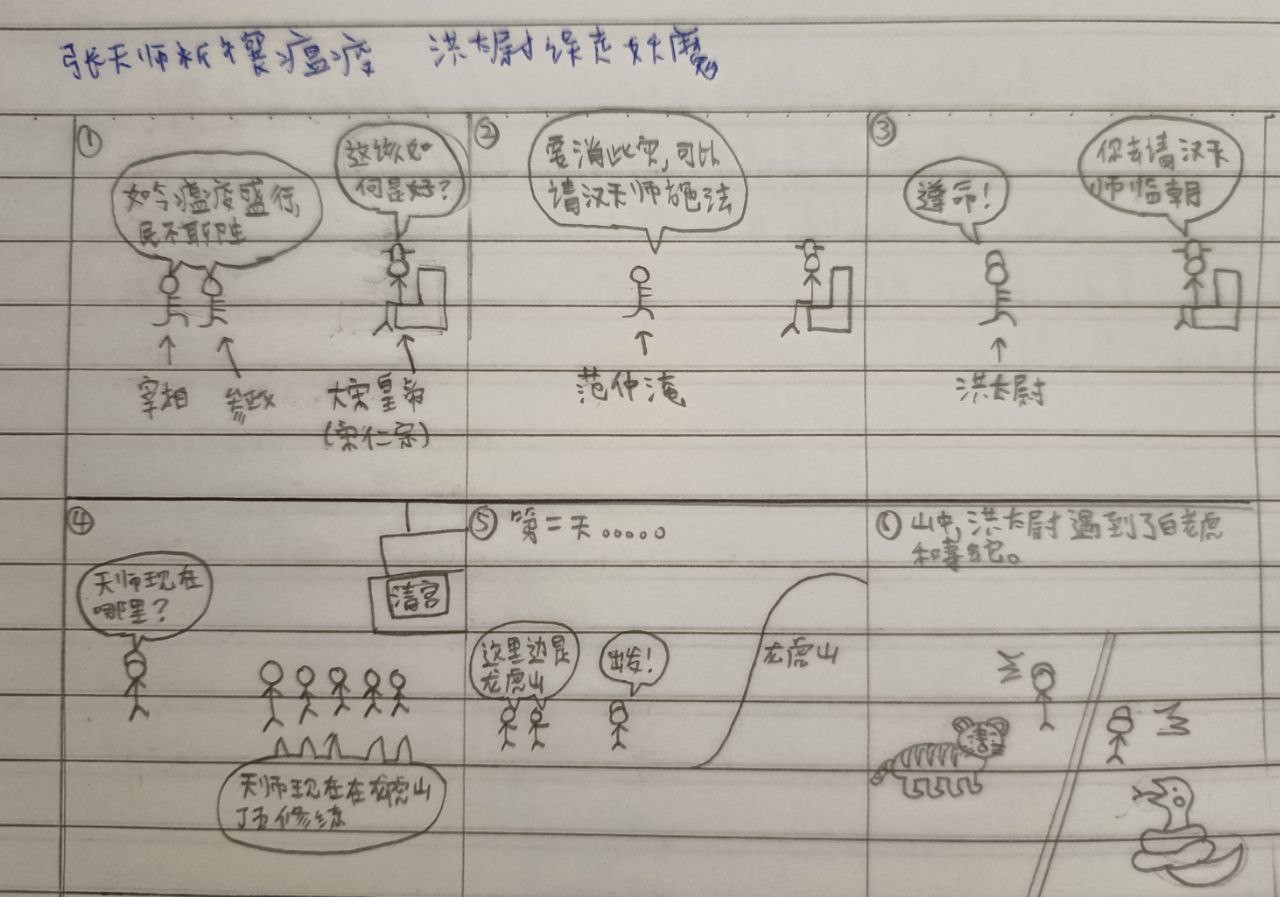 张天师祈禳瘟疫 洪太尉误走妖魔
①
如今瘟疫盛行,
民不聊生
这该如
何是好?
宰相
参政
大宋皇帝
(宋仁宗)
②
要消此灾,可以
请汉天师施法
范仲淹
③
遵命!
你去请汉天
师临朝
洪太尉
④
天师现在
哪里?
清宫
天师现在在龙虎山
顶修练
⑤ 第二天.....
这里边是
龙虎山
出发!
龙虎山
⑥ 山中,洪太尉遇到了白老虎
和毒蛇。